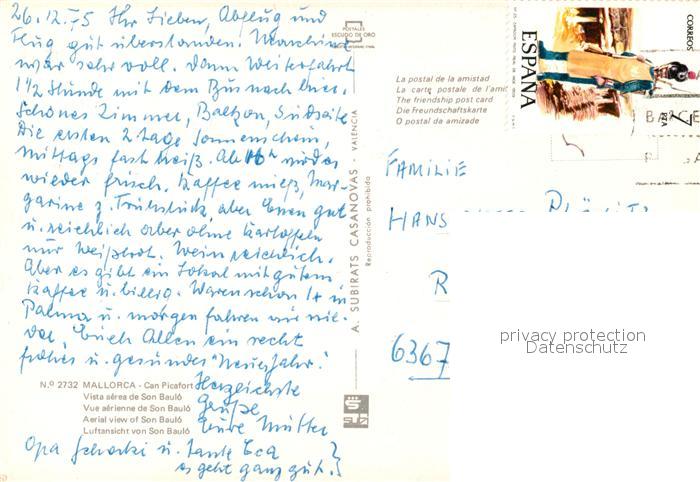 26.12.75 Ihr Lieben, Abflug und
Flug gut überstanden. Maschine
war sehr voll. Dann Weiterfahrt
1 1/2 Stunde mit dem Bus nach hier.
Schönes Zimmer, Balkon, Südseite
Die ersten 2 Tage Sonnenschein,
Mittags fast heiß. Ab 16h wird es
wieder frisch. Kaffee mieß, Mar-
garine z. Frühstück, aber Essen gut
u. reichlich aber ohne Kartoffeln
nur Weißbrot. Wein reichlich.
Aber es gibt ein Lokal mit gutem
Kaffee u. billig. Waren schon 1x in
Palma u. morgen fahren wir wie-
der. Euch Allen ein recht
frohes u. gesundes "Neuesjahr".
Herzlichste
Grüße
Eure Mutter
Opa u. Tante
es geht ganz gut.
Nº 2732 MALLORCA - Can Picafort
Vista aérea de Son Bauló
Vue aérienne de Son Bauló
Aerial view of Son Bauló
Luftansicht von Son Bauló
POSTALES
ESCUDO DE ORO
A. SUBIRATS CASANOVAS - VALENCIA
Reproducción prohibida
La postal de la amistad
La carte postale de l'amit
The friendship post card
Die Freundschaftskarte
O postal da amizade
CORREOS
ESPAÑA
7 PTA
FAMILIE
HANS
R
6367
privacy protection
Datenschutz